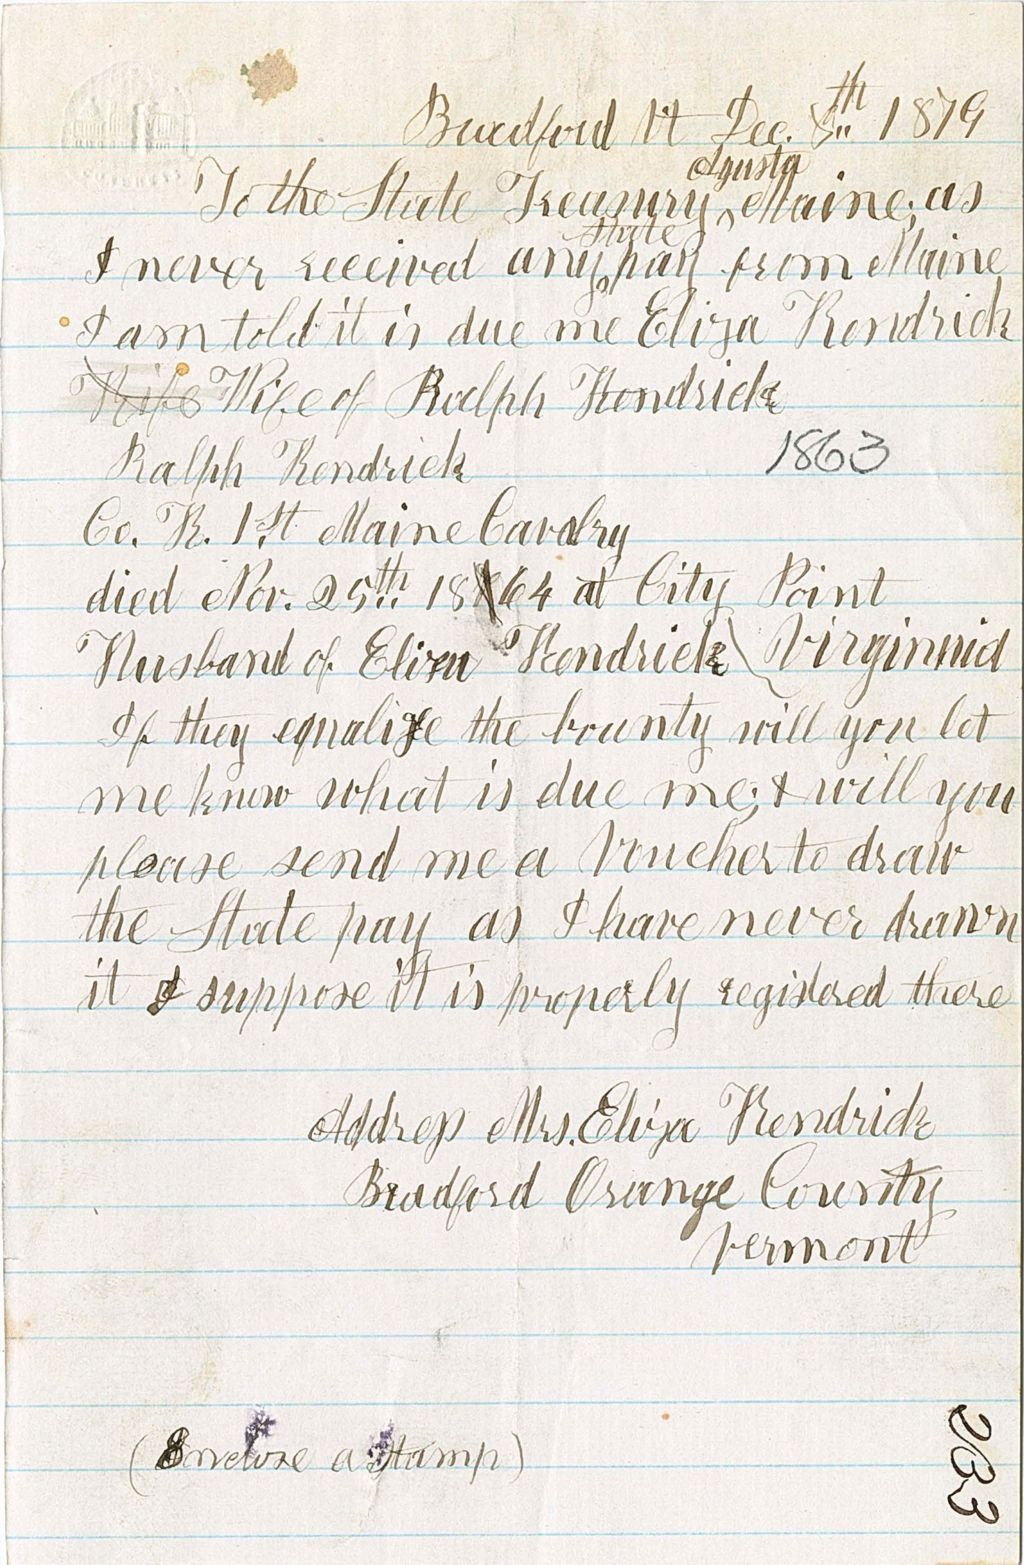 Bradford Vt Dec. 8th 1879
Agusta
To the State Treasury, Maine; as
state
I never received any pay from Maine
I am told it is due me Eliza Kendrick
Wife Wife of Ralph Kendrick
Ralph Kendrick
1863
Co. K. 1st Maine Cavalry
died Nov. 25th 1864 at City Point
Husband of Eliza Kendrick Virginnia
If they equalize the bounty will you let
me know what is due me; & will you
please send me a Voucher to draw
the State pay as I have never drawn
it I suppose it is properly registered there
Address Mrs. Eliza Kendrick
Bradford Orange County
Vermont
(Enclose a Stamp)
233